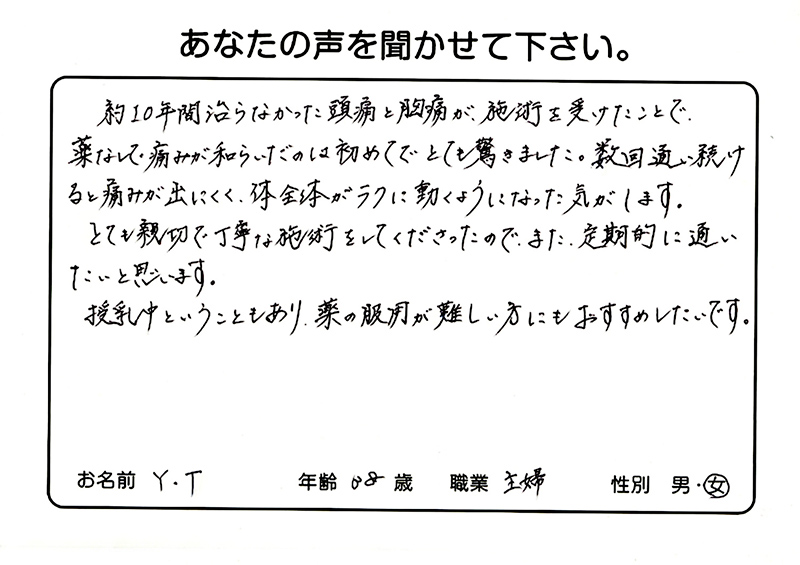 あなたの声を聞かせて下さい。
約10年間治らなかった頭痛と胸痛が、施術を受けたことで、
薬なしで痛みが和らいだのは初めてでとても驚きました。数回通い続け
ると痛みが出にくく、体全体がラクに動くようになった気がします。
とても親切で丁寧な施術をしてくださったので、また、定期的に通い
たいと思います。
授乳中ということもあり、薬の服用が難しい方にもおすすめしたいです。
お名前 Y.T 年齢 歳 職業 主婦 性別 男・女